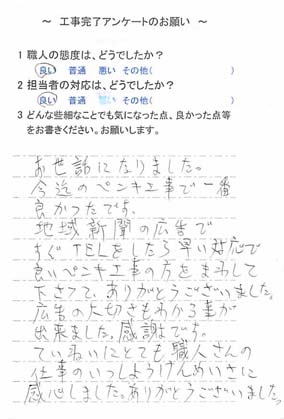 ～ 工事完了アンケートのお願い ～
1 職人の態度は、どうでしたか？
良い 普通 悪い その他( )
2 担当者の対応は、どうでしたか？
良い 普通 悪い その他( )
3 どんな些細なことでも気になった点、良かった点等
をお書きください。お願いします。
お世話になりました。
今迄のペンキ工事で一番
良かったです。
地域新聞の広告で
すぐTELをしたら早い対応で
良いペンキ工事の方をまわして
下さって、ありがとうございました。
広告の大切さもわかる事が
出来ました。感謝です。
ていねいにとても職人さんの
仕事のいっしょうけんめいさに
感心しました。ありがとうございました